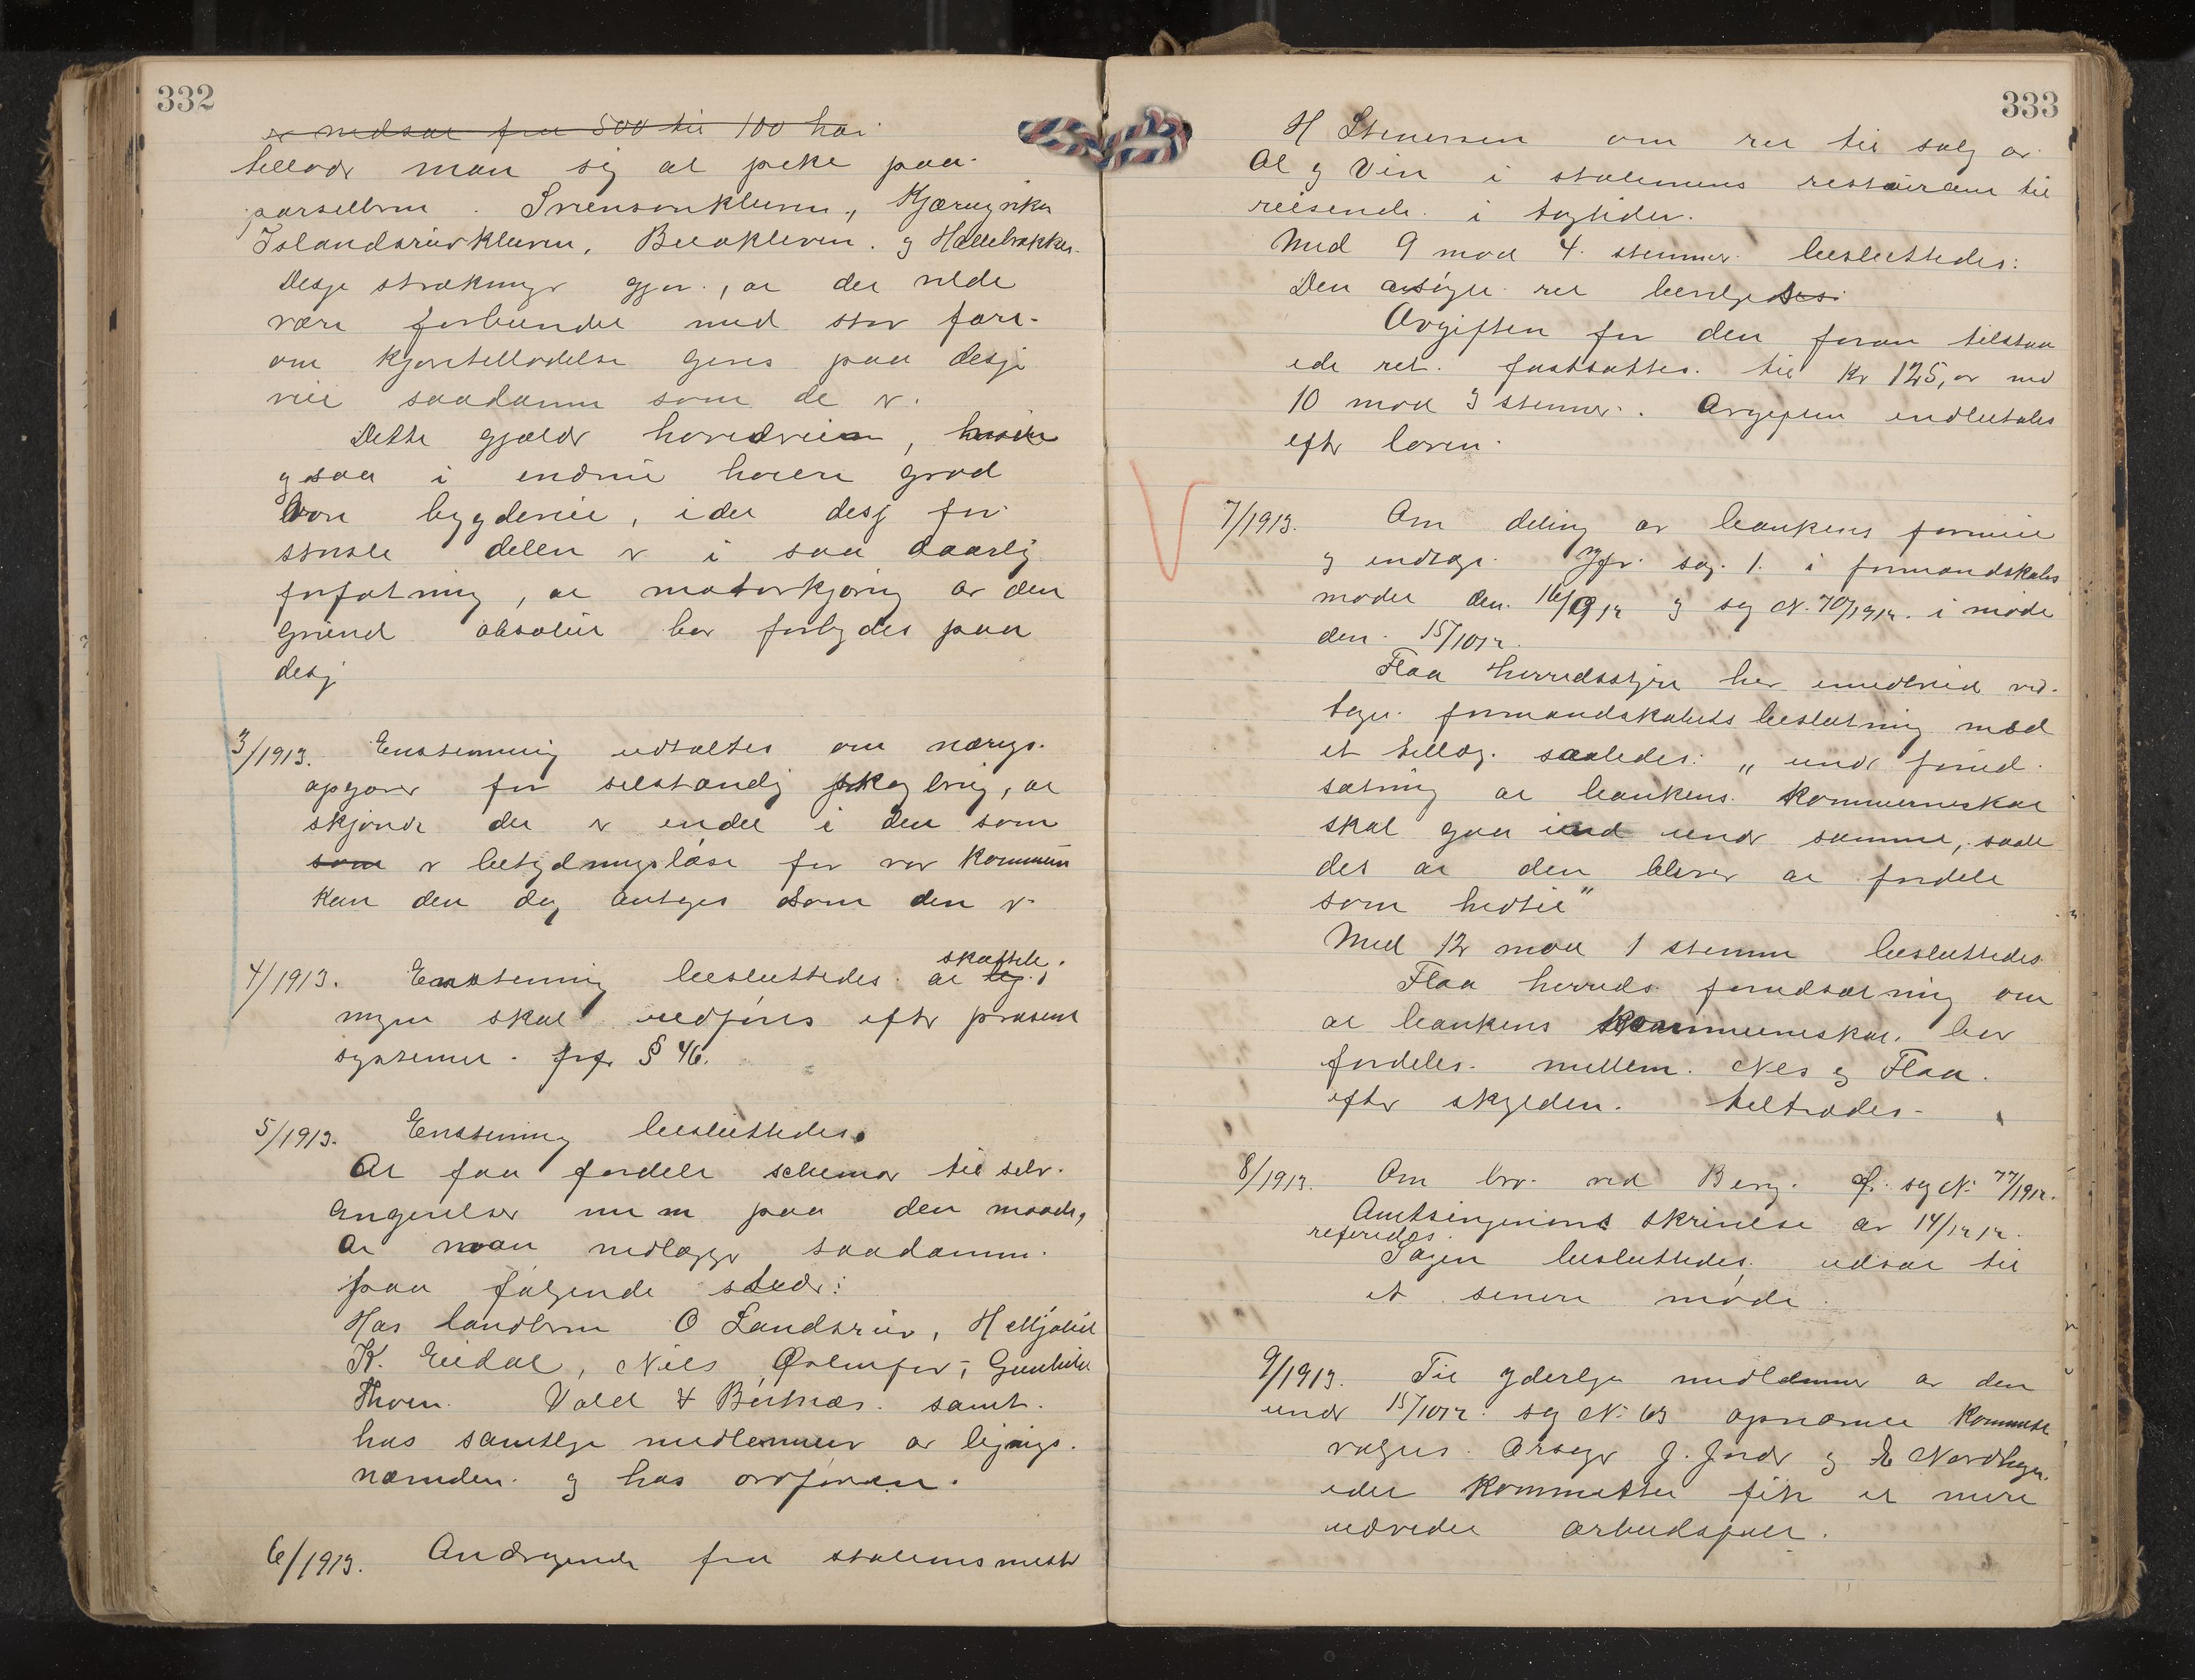 332
er nedsat fra 500 til 100 har
tillodr man sig at peke paa
parsellerne. Svensonkleven, Kjærnvika
Islandsrudkleven, Buakleven. og Hallebakken.
Desse strækninger gjør, at det vilde
være forbundet med stor fare
om kjøretilladelse gives paa desse
veie saadanne som de er.
Dette gjælder hovedveien,
ogsaa i endnu høiere grad
vore bygdeveie, idet desse for
største delen er i saa daarlig
forfatning, at motorkjøring av den
grund absolut bør forbydes paa
desse
3/1913. Enstemmig udtaltes om nærings
opgaver for selstændig skogbrug, at
skjønt der er endel i den som
som er betydningsløse for vor kommune
kan den dog antages som den er
4/1913. Enstemmig besluttedes at lig. skattelig
ningen skal udføres efter prosent
systemet. jvfr § 46.
5/1913. Enstemmig besluttedes.
At faa fordelt schemar til selv
angivelser nu m paa den maade,
at man nedlægger saadanne
paa følgende steder:
Hos landhrm O Landsrud, H Mjølid
K. Eidal, Nils, Gunhild
Thoen. Vold & Bertnæs. samt
hos samtlige medlemmer av ligings
nemnden og hos ordføreren.
6/1913. Andragende fra stationsmester
333
H Stenersen om ret til salg av
Øl og Vin i stationens restaurant til
reisende i togtider.
Med 9 mod 4 stemmer besluttedes:
Den ansøgte ret bevilgedes.
Avgiften for den foran tilstaa
ede ret fastsattes til kr 125,00 med
10 mod 3 stemmer. Avgiften indbetales
efter loven.
7/1913. Om deling av bankens formue
og indtægt. Jfr. sag. 1. i formandskabs
mødet den 16/9 12 og sag N. 70/1912 i møde
den 15/10 12.
Flaa herredsstyre har imidlertid ved
tagen formandskabets beslutning med
et tillæg saaledes: „under forud
sætning at bankens kommuneskat
skal gaa ind under samme, saale
des at den bliver at fordele
som hidtil"
Med 12 mod 1 stemme besluttedes
Flaa herreds forudsætning om
at bankens kommuneskat bør
fordeles mellem Nes og Flaa
efter skylden. tiltrædes
8/1913. Om bro ved Berg. jf. sag N. 77/1912.
Amtsingeniørens skrivelse av 14/12 12
refereredes.
Sagen besluttedes udsat til
et senere møde.
9/1913. Til yderlige medlemmer av den
under 15/10 12 sag N. 63 opnævnte komite
valgtes. Arseger J. Jorde og E Nordhagen
idet kommitteen fik et mere
udvidet arbeidsfelt.